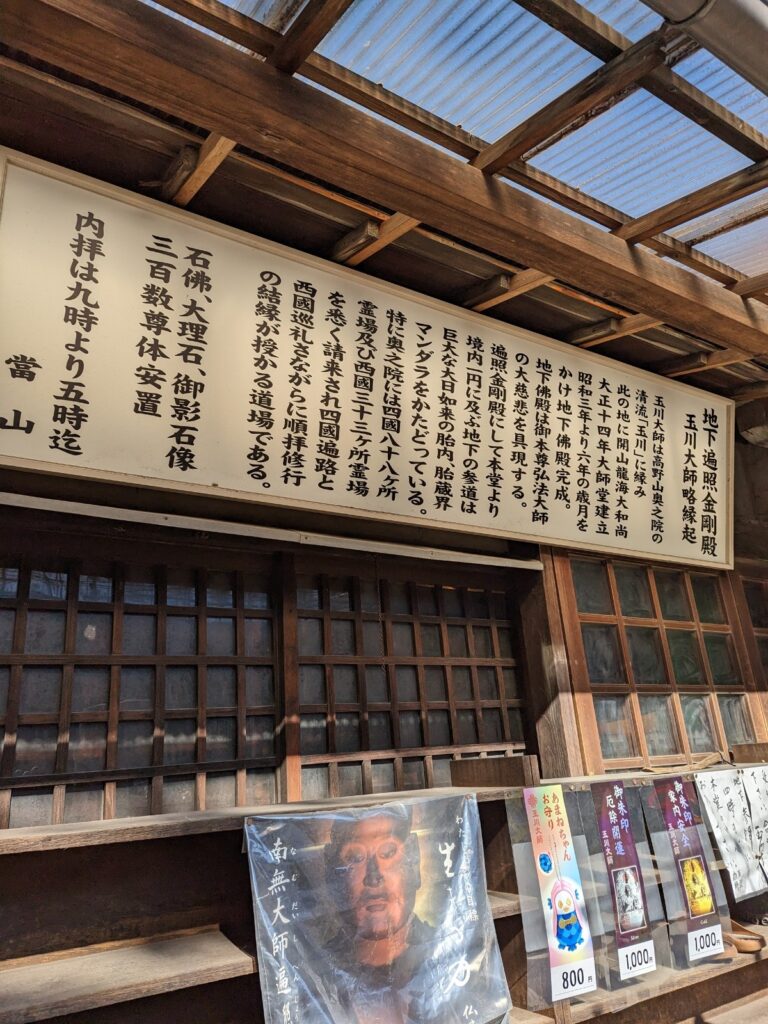 地下遍照金剛殿
玉川大師略縁起
玉川大師は高野山奥之院の
清流「玉川」に縁み
此の地に開山龍海大和尚
大正十四年大師堂建立
昭和三年より六年の歳月を
かけ地下佛殿完成。
地下佛殿は御本尊弘法大師
の大慈悲を具現する。
遍照金剛殿にして本堂より
境内一円に及ぶ地下の参道は
巨大な大日如来の胎内、胎蔵界
マンダラをかたどっている。
特に奥之院には四國八十八ヶ所
霊場及び西國三十三ヶ所霊場
を悉く請来され四國遍路と
西國巡礼さながらに順拝修行
の結縁が授かる道場である。
石佛、大理石、御影石像
三百数尊体安置
内拝は九時より五時迄
當山
南無大師遍
なむだいしへんじょう
あまねちゃん
お守り
玉川大師
800円
御朱印
厄除開運
玉川大師
Silver
1,000円
御朱印
案内安全
玉川大師
Gold
1,000円